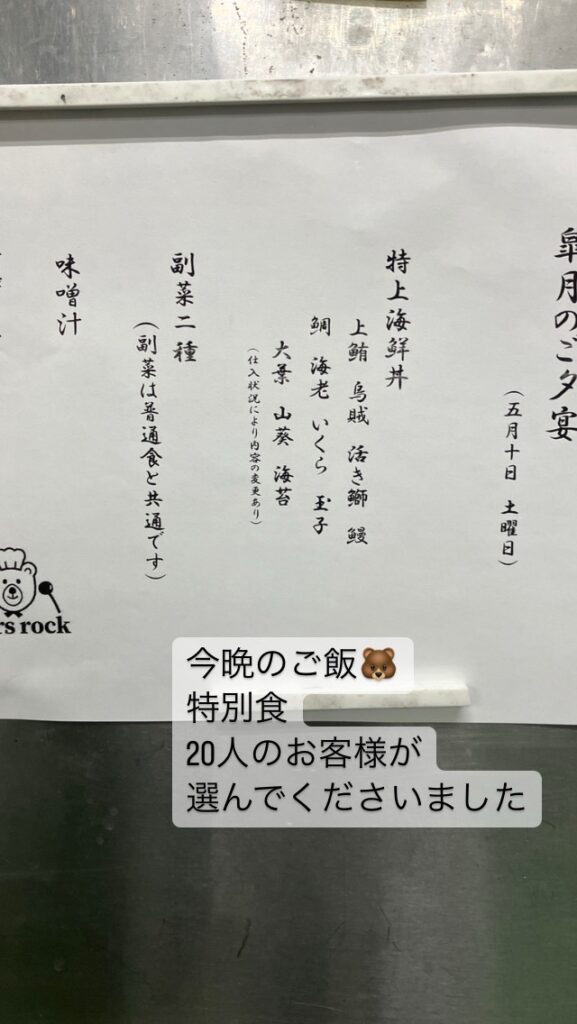 皐月のご夕宴
(五月十日 土曜日)
特上海鮮丼
上鮪 烏賊 活き鰤 鰻
鯛 海老 いくら 玉子
大葉 山葵 海苔
(仕入状況により内容の変更あり)
副菜二種
(副菜は普通食と共通です)
味噌汁
rs rock
今晩のご飯🐻
特別食
20人のお客様が
選んでくださいました